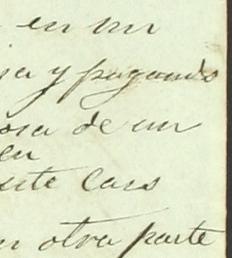 en un
ja y pagando
osa de un
en
este caso
n otra parte